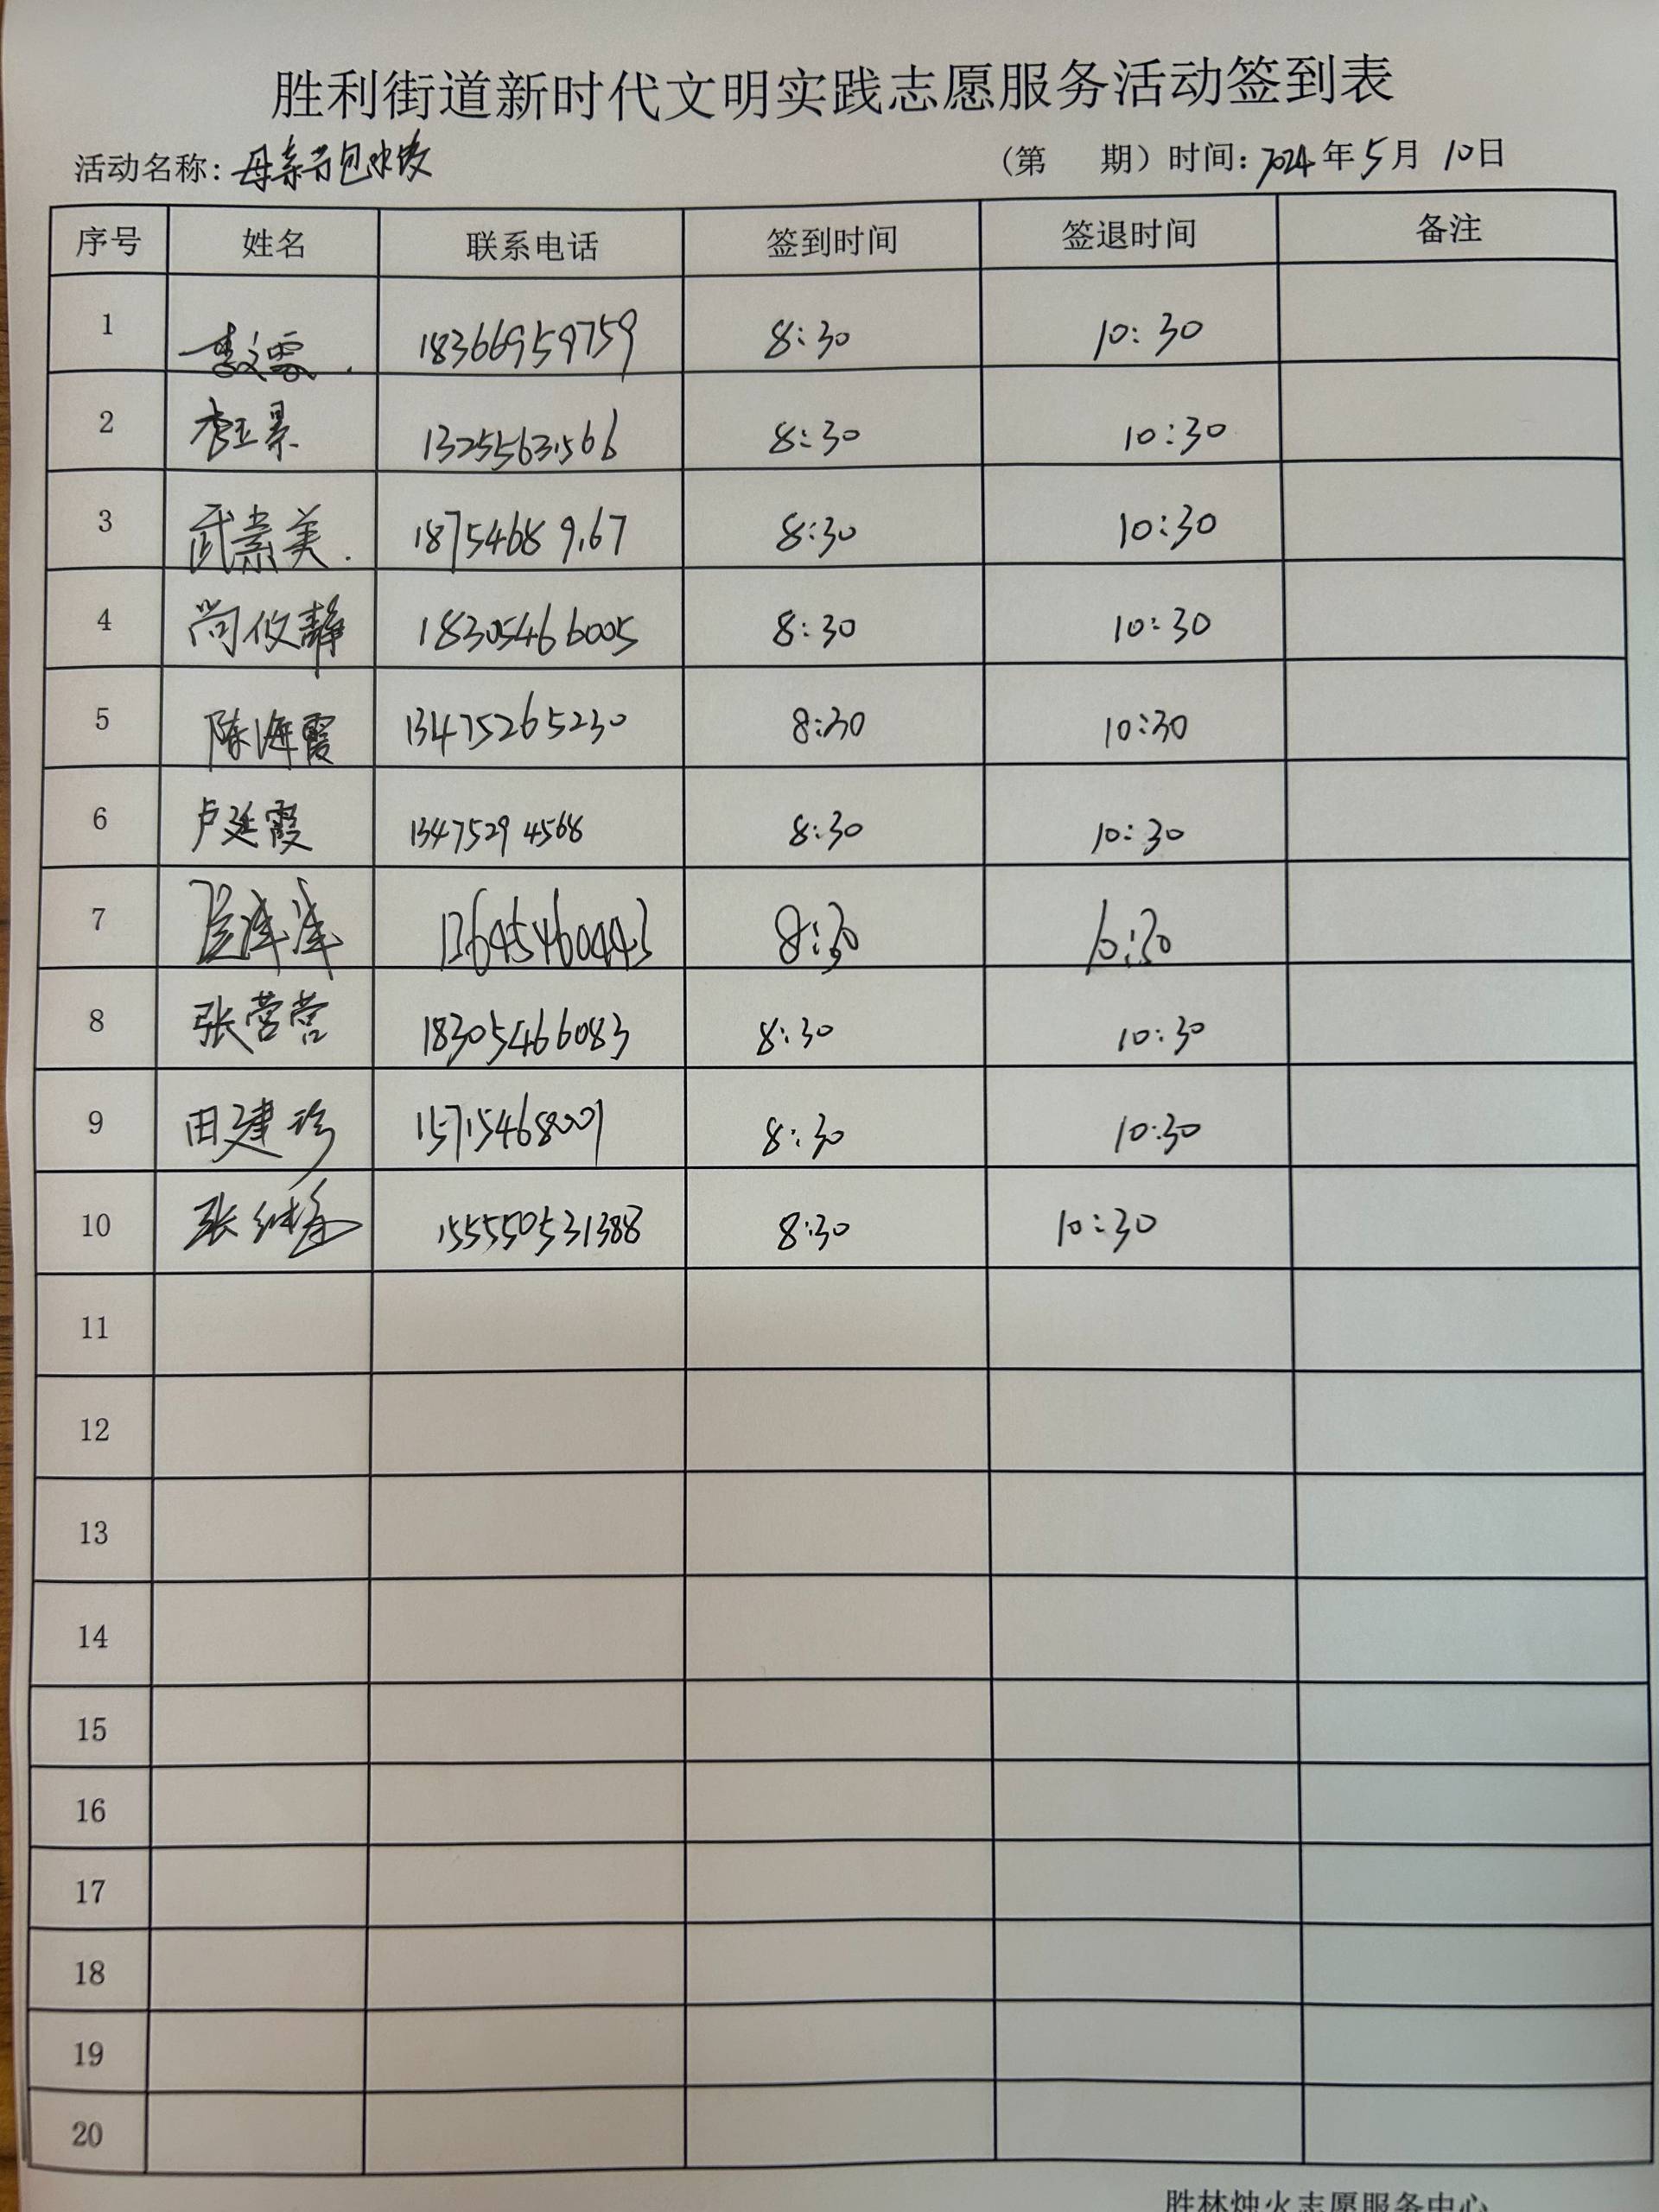 胜利街道新时代文明实践志愿服务活动签到表
活动名称：母亲节包水饺 （第 期）时间：2024年5月10日
序号 姓名 联系电话 签到时间 签退时间 备注
1 李文霞 18366959759 8:30 10:30
2 李玉景 13255631566 8:30 10:30
3 武素美 18754689167 8:30 10:30
4 尚攸静 18305466005 8:30 10:30
5 陈海霞 13475265230 8:30 10:30
6 卢延霞 13475294568 8:30 10:30
7 13645460443 8:30 10:30
8 张营营 18305466083 8:30 10:30
9 田建珍 15715468001 8:30 10:30
10 张 15550531388 8:30 10:30
11
12
13
14
15
16
17
18
19
20
胜林烛火志愿服务中心